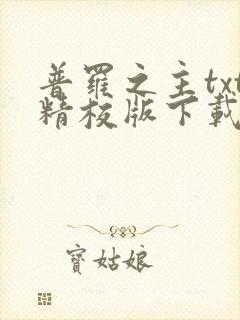 普羅之主txt
精校版下載
寶姑娘